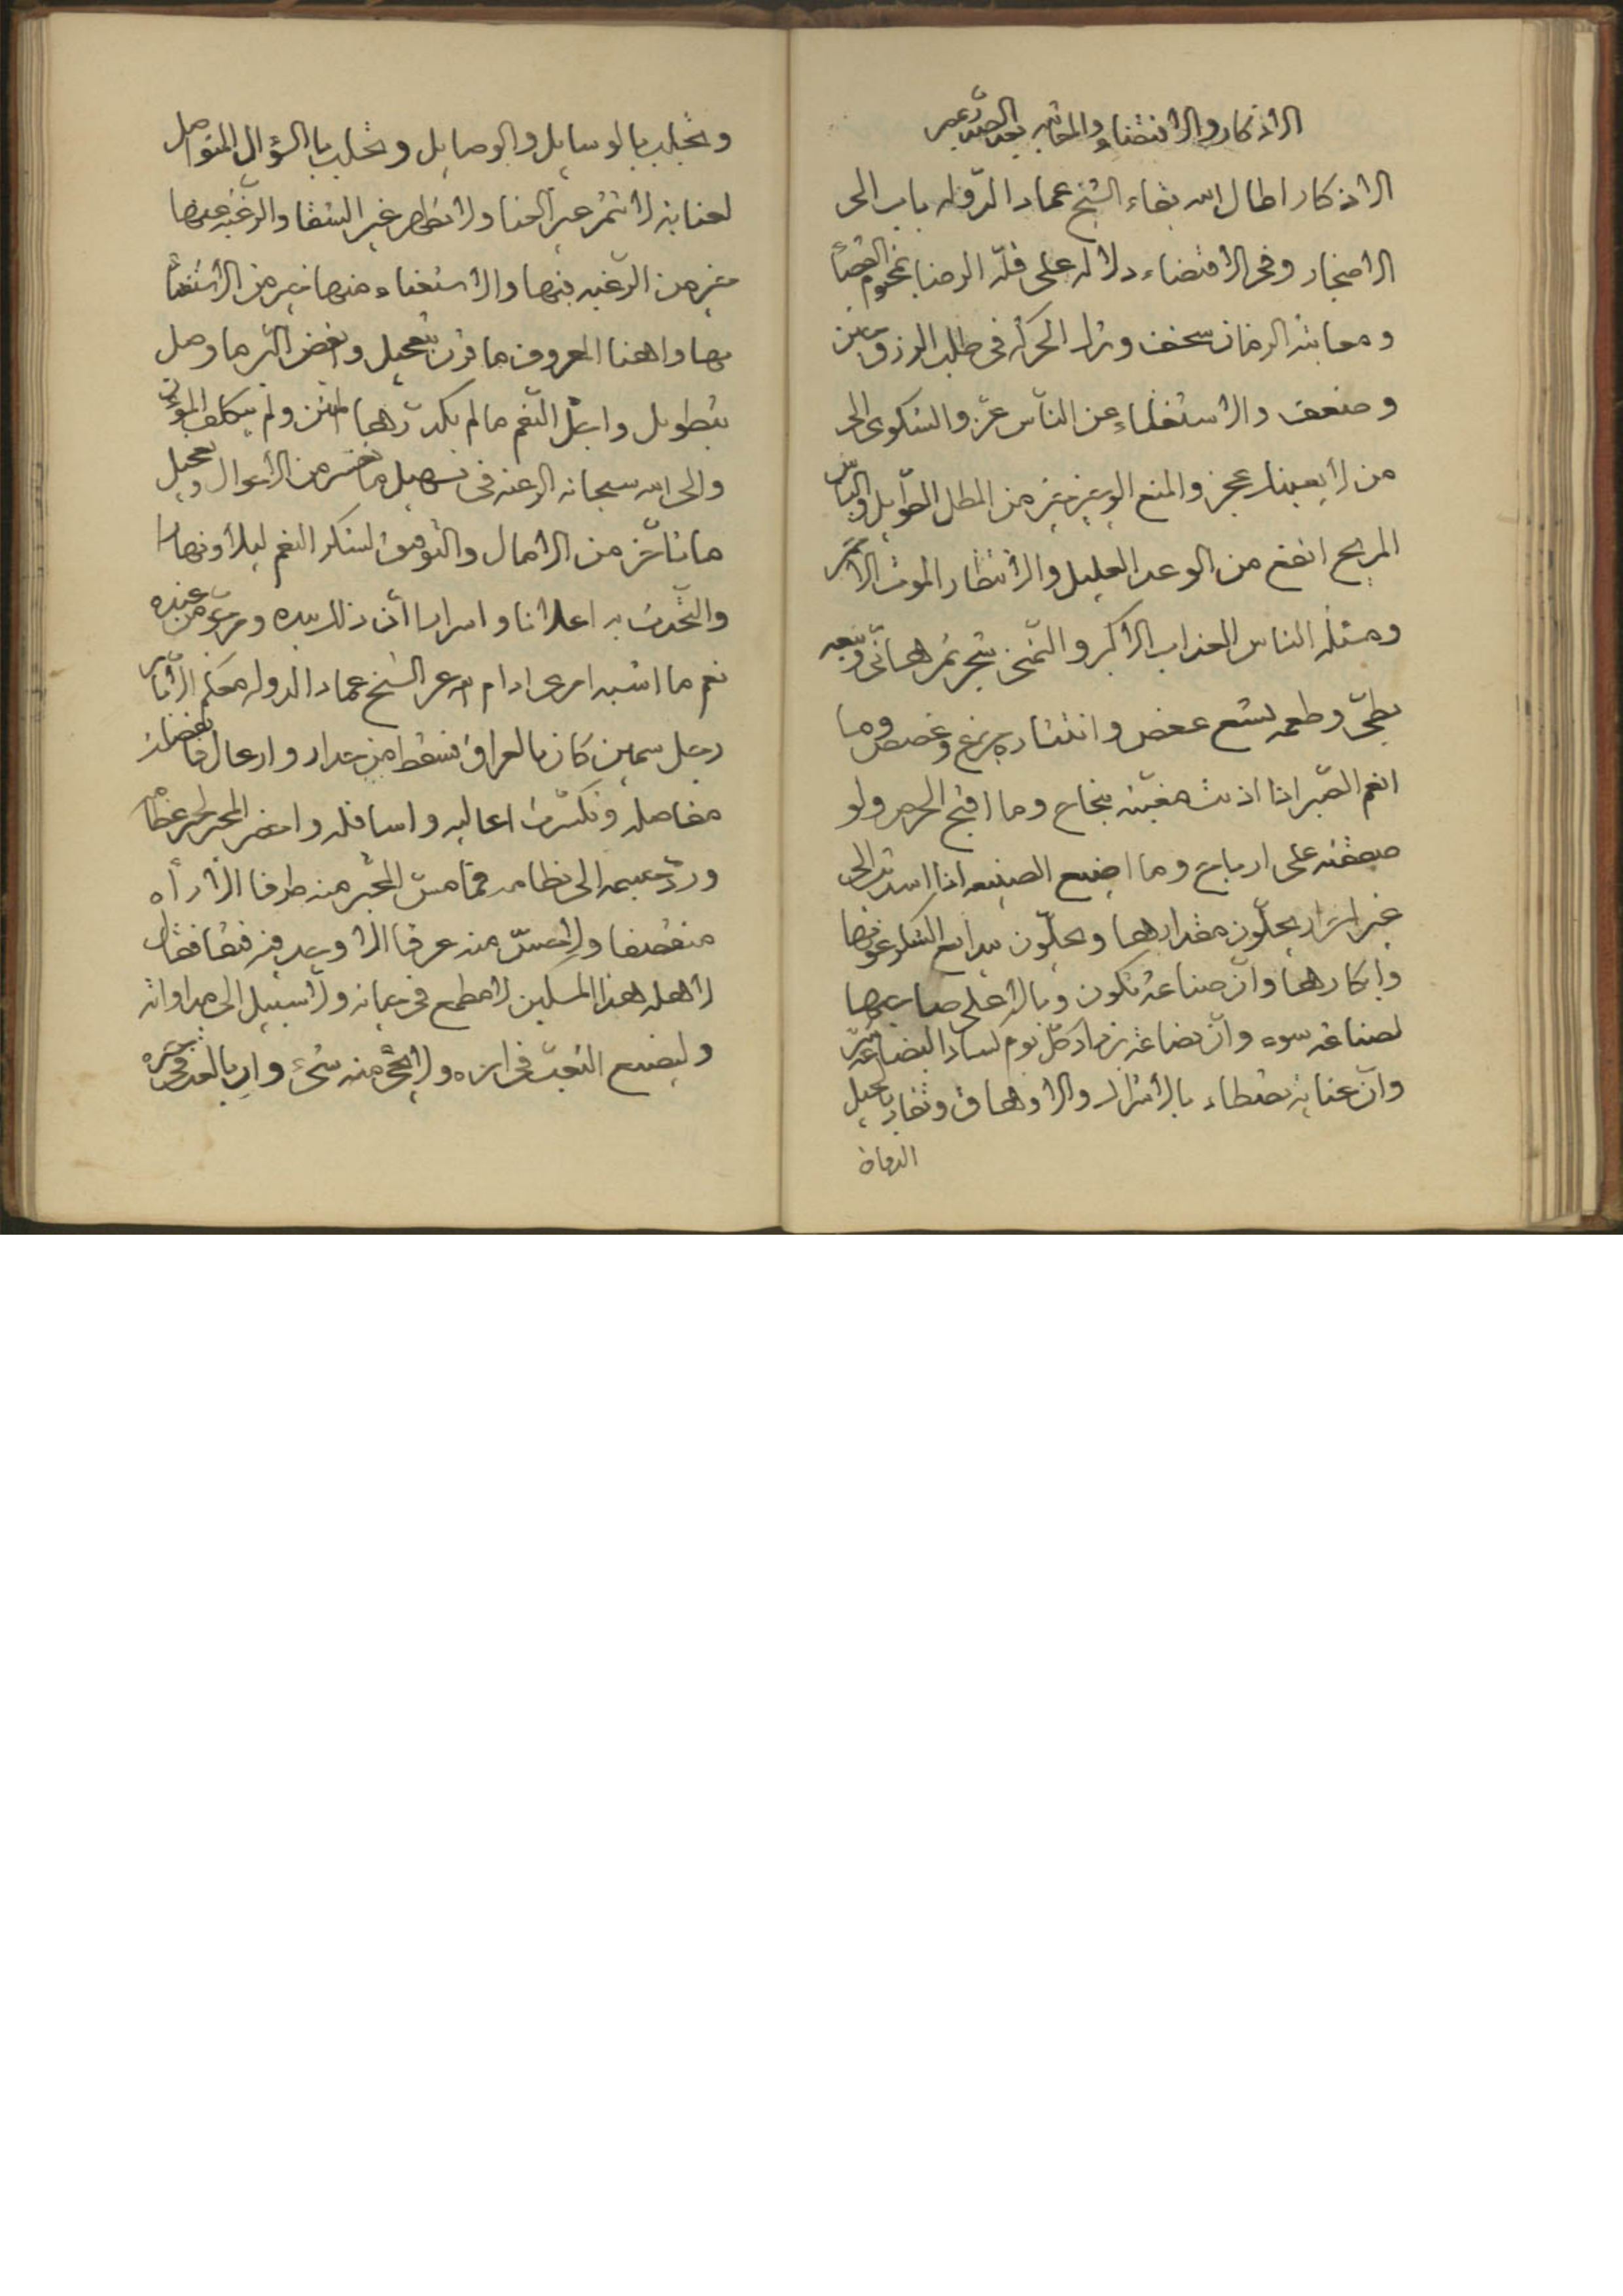 الاذكار والاقتضاء والمعاتبه
الاذكار اطال الله بقاء الشيخ عماد الدوله باب الى
الاضجار وفى الاقتضاء دلاله على قلّه الرضا بمحتوم القضا
ومعاتبة الزمان سخف وترك الحركه فى طلب الرزق
وضعف والاستغناء عن الناس عزّ والشكوى الى
من لا يعينك عجز والمنع الوجيز خير من المطل الطويل والياس
المريح انفع من الوعد العليل والانتظار الموت الاحمر
ومسئلة الناس العذاب الاكبر والتمنى شجر ثمرها
بطىّ وطعمه بشع عفص وانتشاره وغصص وما
انعم الصبر اذا اذنت مغبّته بنجاح وما اقبح الحرص ولو
صفقته على ارباح وما اضيع الصنيعه اذا اسديت الى
غير احرار يجلّون مقدارها ويحلّون ببدايع الشكر عونها
وابكارها وانّ صناعة تكون وبالا على صاحبها
لصناعة سوء وانّ بضاعة تزداد كلّ يوم كسادا البضاعة
وانّ عناية تصطاد بالاشراك والاوهاق وتقاد بالحيل
الدهاة
وتجلب بالوسايل والوصايل وتحلب بالسؤال المتواصل
لعناية لا تثمر غير العنا ولا تظهر غير الشقا والرغبه عنها
خير من الرغبه فيها والاستغناء منها خير من الاستغنا
بها واهنا المعروف ما قرن بتعجيل وابغض البر ما وصل
بتطويل واجلّ النعم ما لم يكدّرها المنن ولم يتكلف
والى الله سبحانه الرغبه فى تسهيل ما تعسر من الاحوال وتعجيل
ما تاخّر من الامال والتوفيق لشكر النعم ليلا ونهارا
والتحدث به اعلانا واسرارا انّ ذلك بيده ومرجو من عنده
نعم ما اشبه امرى ادام الله عز الشيخ عماد الدوله معكم الّا
رجل سمين كان بالعراق فسقط من جدار
مفاصله وتكسّرت اعاليه واسافله واحضر المجبر لجبر عظامه
وردّ جسمه الى نظامه فما مسّ المجبّر منه طرفا الا رآه
منقصفا ولا جسّ منه عرقا الا وجده فقال
لاهله هذا المسكين لا مطمع فى حياته ولا سبيل الى مداواته
وليضيع التعب فى امره ولا يجئ منه شىء